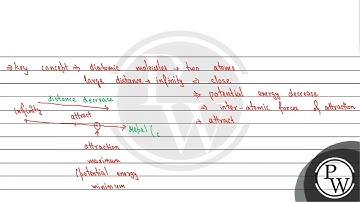 ⇒ key concept ⇒ diatomic molecules → two atoms
large distance → infinity ⇒ close
⇒ potential energy decrease
⇒ inter-atomic forces of attraction
→ attract
distance decrease
infinity
attract
stable (c
attraction
maximum
(potential energy
minimum
P
W